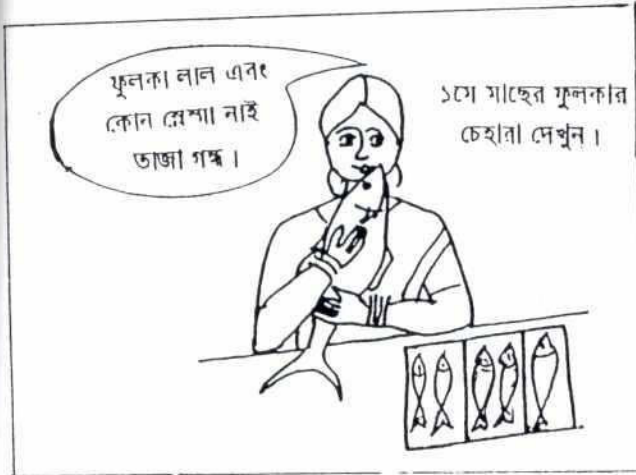 ফুলকা লাল এবং
কোন শ্লেশ্মা নাই
তাজা গন্ধ ।
১মে মাছের ফুলকার
চেহারা দেখুন ।